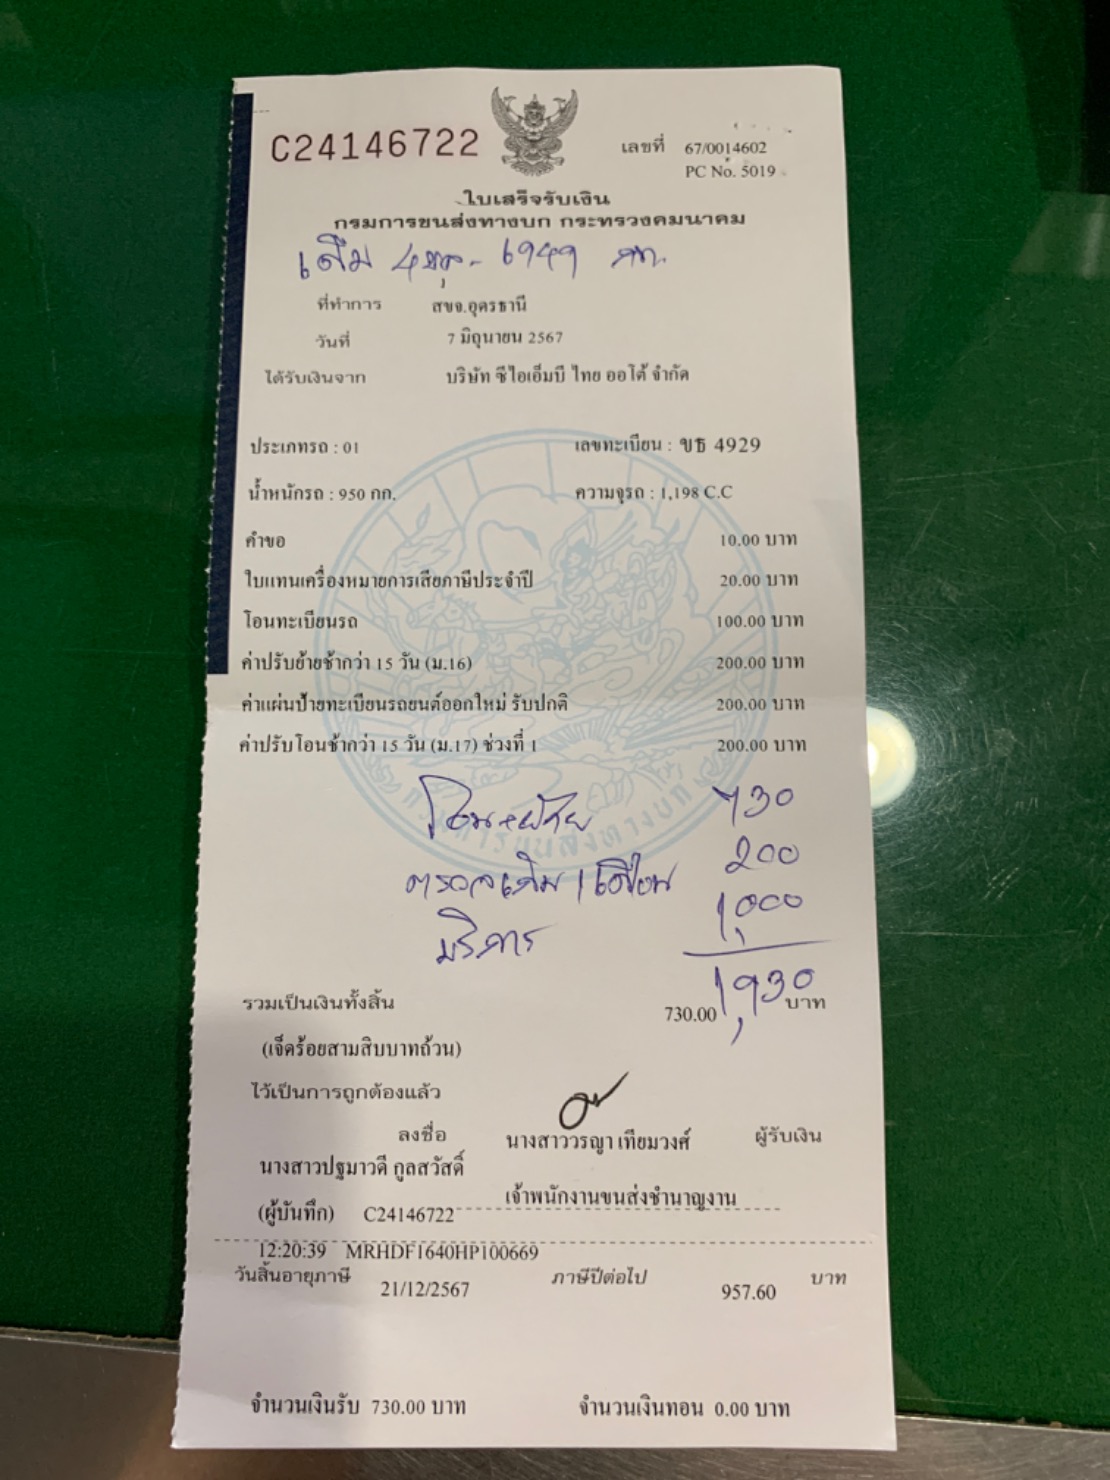 C24146722
เลขที่ 67/0014602
PC No. 5019
ใบเสร็จรับเงิน
กรมการขนส่งทางบก กระทรวงคมนาคม
เดิม
ที่ทำการ สขจ.อุดรธานี
วันที่ 7 มิถุนายน 2567
ได้รับเงินจาก บริษัท ซีไอเอ็มบี ไทย ออโต้ จำกัด
ประเภทรถ : 01 เลขทะเบียน : ขธ 4929
น้ำหนักรถ : 950 กก. ความจุรถ : 1,198 C.C
คำขอ 10.00 บาท
ใบแทนเครื่องหมายการเสียภาษีประจำปี 20.00 บาท
โอนทะเบียนรถ 100.00 บาท
ค่าปรับย้ายช้ากว่า 15 วัน (ม.16) 200.00 บาท
ค่าแผ่นป้ายทะเบียนรถยนต์ออกใหม่ รับปกติ 200.00 บาท
ค่าปรับโอนช้ากว่า 15 วัน (ม.17) ช่วงที่ 1 200.00 บาท
กรมการขนส่งทางบก
โอน+ย้าย 730
200
บริการ 1,000
1,930
รวมเป็นเงินทั้งสิ้น 730.00 บาท
(เจ็ดร้อยสามสิบบาทถ้วน)
ไว้เป็นการถูกต้องแล้ว
ลงชื่อ นางสาววรญา เทียมวงศ์ ผู้รับเงิน
นางสาวปฐมาวดี กูลสวัสดิ์
เจ้าพนักงานขนส่งชำนาญงาน
(ผู้บันทึก) C24146722
12:20:39 MRHDF1640HP100669
วันสิ้นอายุภาษี 21/12/2567 ภาษีปีต่อไป 957.60 บาท
จำนวนเงินรับ 730.00 บาท จำนวนเงินทอน 0.00 บาท